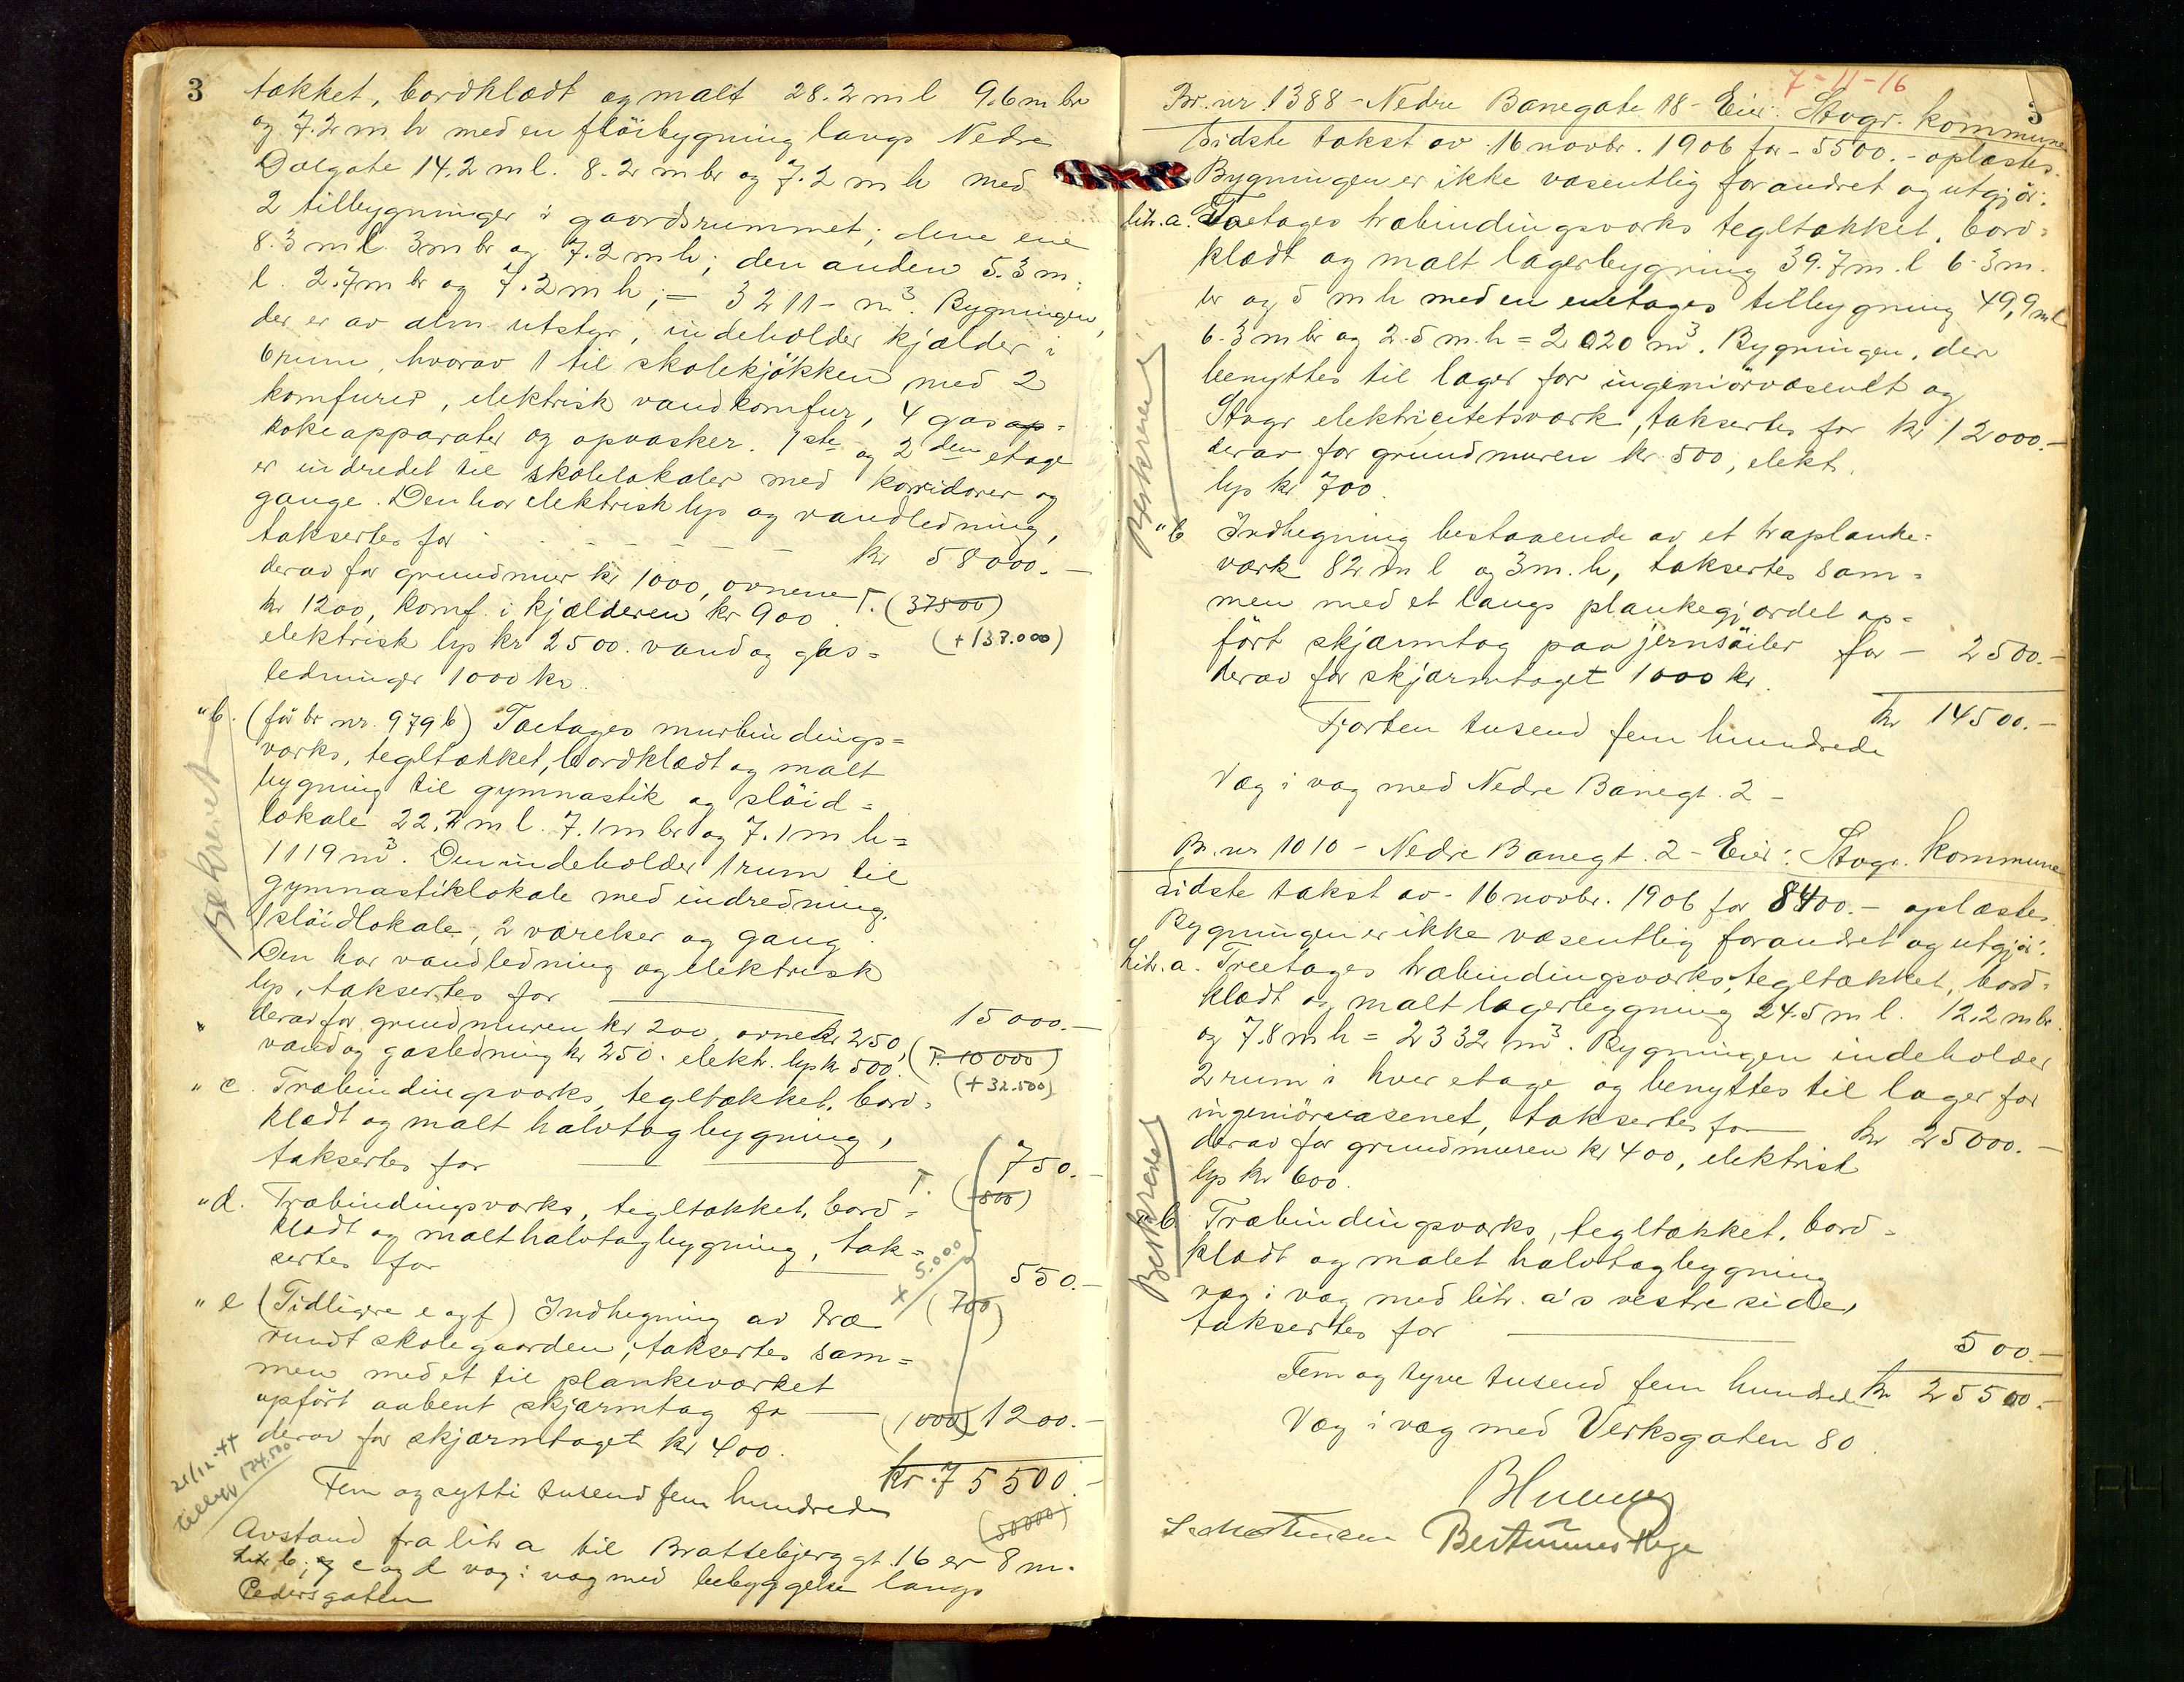 3
tækket, bordklædt og malt 28.2 m l 9.6 m br
og 7.2 m h med en flöibygning langs Nedre
Dalgate 14.2 m l. 8.2 m br og 7.2 m h med
2 tilbygninger i gaardsrummet; dene ene
8.3 m l. 3 m br og 7.2 m h; den anden 5.3 m.
l. 2.7 m br og 7.2 m h; – 3211 – m³. Bygningen,
der er av alm utstyr, indeholder kjælder i
6 rum, hvorav 1 til skolekjökken med 2
komfurer, elektrisk vandkomfur, 4 gas ap-
kokeapparater og opvasker. 1ste og 2den etage
er indredet til skolelokaler med korridorer og
gange. Den har elektrisk lys og vandledning,
taksertes for - - - - - - kr 58000.–
derav for grundmur kr 1000, ovnene T. (37500)
kr 1200, komf. i kjælderen kr 900 (+137.000)
elektrisk lys kr 2500. vand og gas=
ledninger 1000 kr.
"b. (för br nr. 979 b) Toetages murbindings=
værks, tegltækket, bordklædt og malt
bygning til gymnastik og slöid=
lokale 22.2 m l. 7.1 m br og 7.1 m h=
1119 m³. Den indeholder 1 rum til
gymnastiklokale med indredning.
1 slöidlokale, 2 værelser og gang.
Den har vandledning og elektrisk
lys, taksertes for 15000.–
derav for grundmuren kr 200, ovne kr 250,
vand og gasledning kr 250. elektr. lys kr 500. (T. 10000)
(+32.500)
Beskrevet
" c. Træbindingsværks, tegltækket, bord=
klædt og malt halvtagbygning,
taksertes for 750.–
T. (800)
"d. Træbindingsværks, tegltækket, bord=
klædt og malt halvtagbygning, tak=
sertes for 550.–
+ 5.000
" e (Tidligere e og f) Indhegning av træ (700)
rundt skolegaarden, taksertes sam=
men med et til plankeværket
opfört aabent skjærmtag fo (1000) 1200.–
derav for skjærmtaget kr 400.
kr. 75500.–
Fem og sytti tusend fem hundrede
(50000)
21/12-44
tillegg 174.500
Avstand fra litr a til Brattebjerg gt. 16 er 8 m.
Litr b, og c og d væg i væg med bebyggelse langs
Pedersgaten
7-11-16
3
Br. nr 1388 – Nedre Banegate 18 – Eier: Stvgr. kommune
Sidste takst av 16 novbr. 1906 for – 5500.– oplæstes.
Bygningen er ikke væsentlig forandret og utgjör:
litr. a. Toetages træbindingsværks tegltækket, bord=
klædt og malt lagerbygning 39.7 m. l 6.3 m.
br og 5 m h med en enetages tilbygning 49,9 m l
6.3 m br og 2.5 m. h = 2020 m³. Bygningen, der
benyttes til lager for ingeniörvæsenet og
Stvgr elektricitetsværk, taksertes for kr 12000.–
derav for grundmuren kr. 500, elekt.
lys kr 700.
Beskrevet
"b Indhegning bestaaende av et træplanke=
værk 82 m l og 3 m. h, taksertes sam=
men med et langs plankegjærdet op=
fört skjærmtag paa jernsöiler for – 2500.–
derav for skjærmtaget 1000 kr.
kr 14500.–
Fjorten tusend fem hundrede
Væg i væg med Nedre Banegt. 2 –
Br. nr 1010 – Nedre Banegt. 2 – Eier: Stvgr. kommune
Sidste takst av 16 novbr. 1906 for 8400.– oplæstes.
Bygningen er ikke væsentlig forandret og utgjör:
Litr. a. Treetages træbindingsværks, tegltækket, bord=
klædt og malt lagerbygning 24.5 m l. 12.2 m br.
og 7.8 m h = 2332 m³. Bygningen indeholder
2 rum i hver etage og benyttes til lager for
ingeniörvæsenet, taksertes for kr 25000.–
derav for grundmuren kr 400, elektrisk
lys kr 600.
Beskrevet
"b Træbindingsværks, tegltækket, bord=
klædt og malet halvtagbygning
væg i væg med litr. a's vestre side,
taksertes for 500.–
Fem og tyve tusend fem hundrede kr 25500.–
Væg i væg med Verksgaten 80.